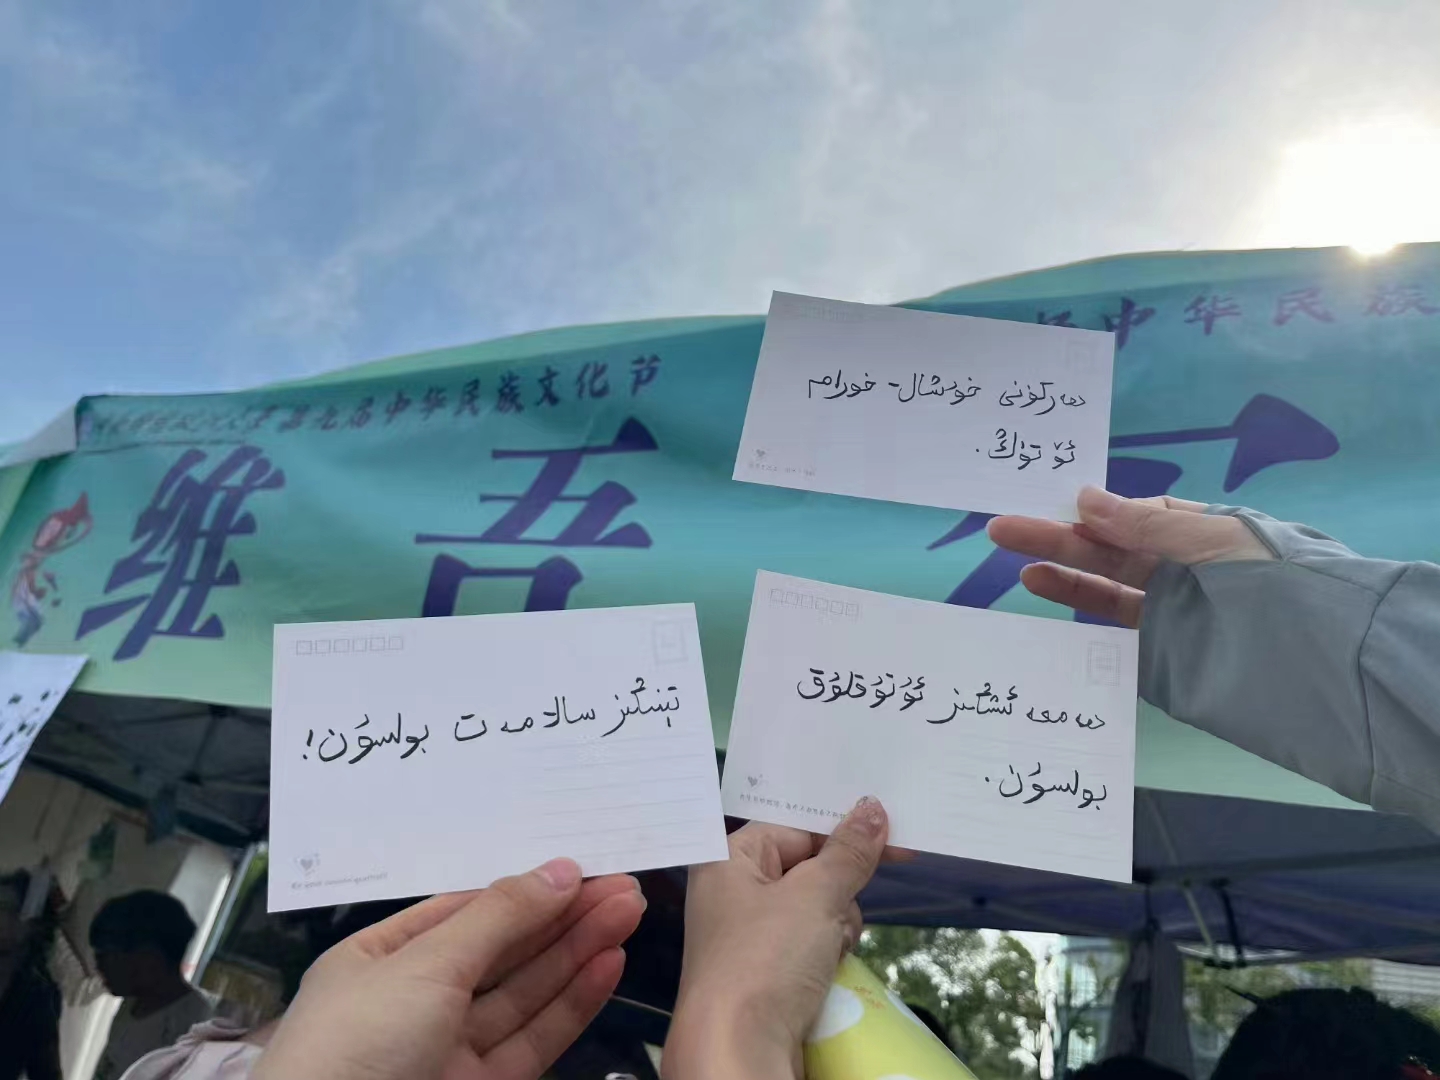 第九届中华民族文化节
中华民族
维吾
ھەركۈنى خۇشال- خورام
ئۆتۈڭ.
تېنىڭىز سالامەت بولسۇن!
ھەممە ئىشىڭىز ئۇتۇقلۇق
بولسۇن.